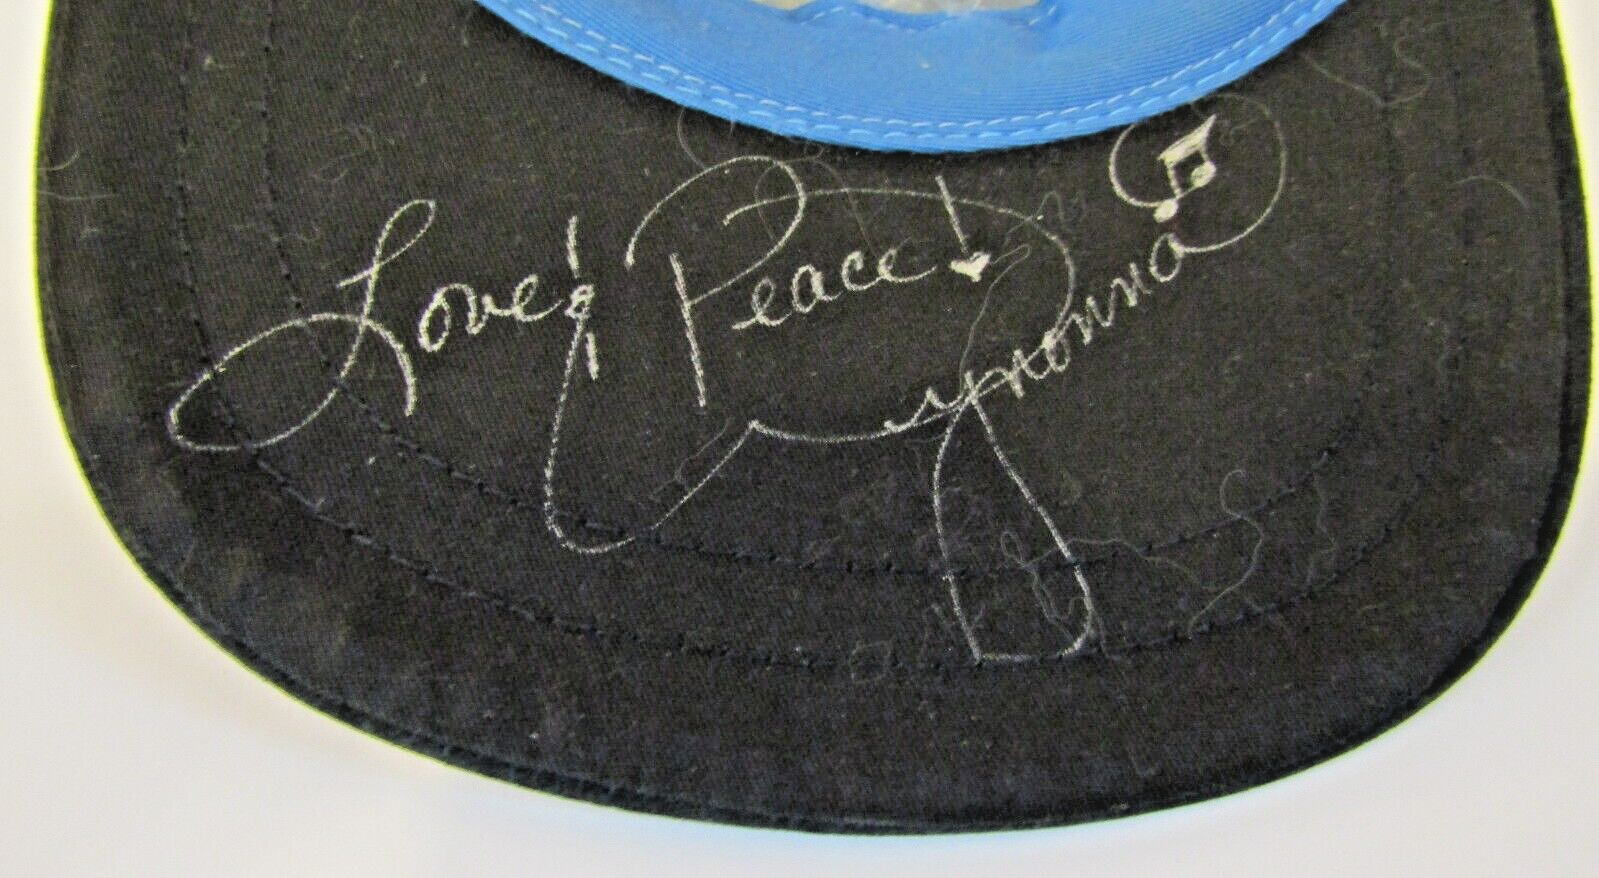 Love! Peace!
Wynonna